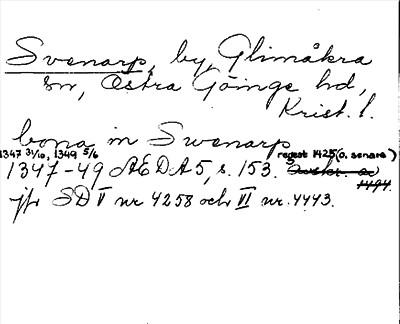 Svenarp, by, Glimåkra
sn, Östra Göinge hd,
Krist. l.
bona in Swenarp
1347 31/10, 1349 5/6 regest 1425 (o. senare)
1347-49 ÆDA 5, s. 153.
1494.
jfr SD V nr 4258 och VI nr. 4443.